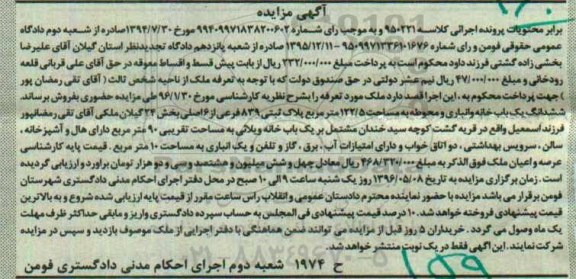 آگهی مزایده
برابر محتویات پرونده اجرائی کلاسه ۹۵۰۲۳۱ و به موجب رای شماره ۹۹۴۰۹۹۷۱۸۳۸۲۰۰۶۰۲ مورخ ۱۳۹۴/۷/۳۰ صادره از شعبه دوم دادگاه
عمومی حقوقی فومن و رای شماره ۹۵۰۹۹۷۱۳۳۶۱۰۱۶۷۶ - ۱۳۹۵/۱۲/۱۱ صادره از شعبه پانزدهم دادگاه تجدیدنظر استان گیلان آقای علیرضا
بخشی زاده گشتی فرزند داود محکوم است به پرداخت مبلغ ۲۳۲/۰۰۰/۰۰۰ ریال از بابت پیش قسط و اقساط معوقه در حق آقای علی قربانی قلعه
رودخانی و مبلغ ۴۷/۰۰۰/۰۰۰ ریال نیم عشر دولتی در حق صندوق دولت که با توجه به تعرفه ملک از ناحیه شخص ثالث ( آقای تقی رمضان پور
) جهت پرداخت محکوم به ، این اجرا قصد دارد ملک مورد تعرفه را بشرح نظریه کارشناسی مورخ ۹۶/۱/۳۰ طی مزایده حضوری بفروش برساند.
ششدانگ یک باب خانه وانباری و محوطه به مساحت ۱۲۲/۵ متر مربع پلاک ثبتی ۸۳۹ فرعی از ۶ اصلی بخش ۲۴ گیلان ملکی آقای تقی رمضانپور
فرزند اسمعیل واقع در قریه گشت کوچه سید خندان مشتمل بر یک باب خانه ویلائی به مساحت تقریبی ۹۰ متر مربع دارای هال و آشپزخانه .
سالن ، سرویس بهداشتی ، دو اتاق خواب و دارای امتیازات آب . برق ، گاز و تلفن و یک انباری به مساحت ۱۰ متر مربع . قیمت پایه کارشناسی
عرصه واعیان ملک فوق الذکر به مبلغ ۴۶۸/۳۲۰/۰۰۰ ریال معادل چهل و شش میلیون و هشتصد و سی و دو هزار تومان برآورد و ارزیابی گردیده
است. زمان برگزاری مزایده به تاریخ ۱۳۹۶/۰۵/۰۸ روز یک شنبه ساعت ۹ الی ۱۰ صبح در محل دفتر اجرای احکام مدنی دادگستری شهرستان
فومن برقرار می باشد مزایده با حضور نماینده محترم دادستان عمومی و انقلاب راس ساعت مقرر از قیمت پایه ارزیابی شده شروع و به بالاترین
قیمت پیشنهادی فروخته خواهد شد. ۱۰ درصد قیمت پیشنهادی فی المجلس به حساب سپرده دادگستری واریز و مابقی حداکثر ظرف مهلت
یک ماه وصول می گردد . خریداران ۵ روز قبل از مزایده می توانند ضمن هماهنگی با دفتر اجرایی از ملک موصوف بازدید و سپس در مزایده
شرکت نمایند. این آگهی فقط در یک نوبت منتشر خواهد شد.
ح ۱۹۷۴ شعبه دوم اجرای احکام مدنی دادگستری فومن